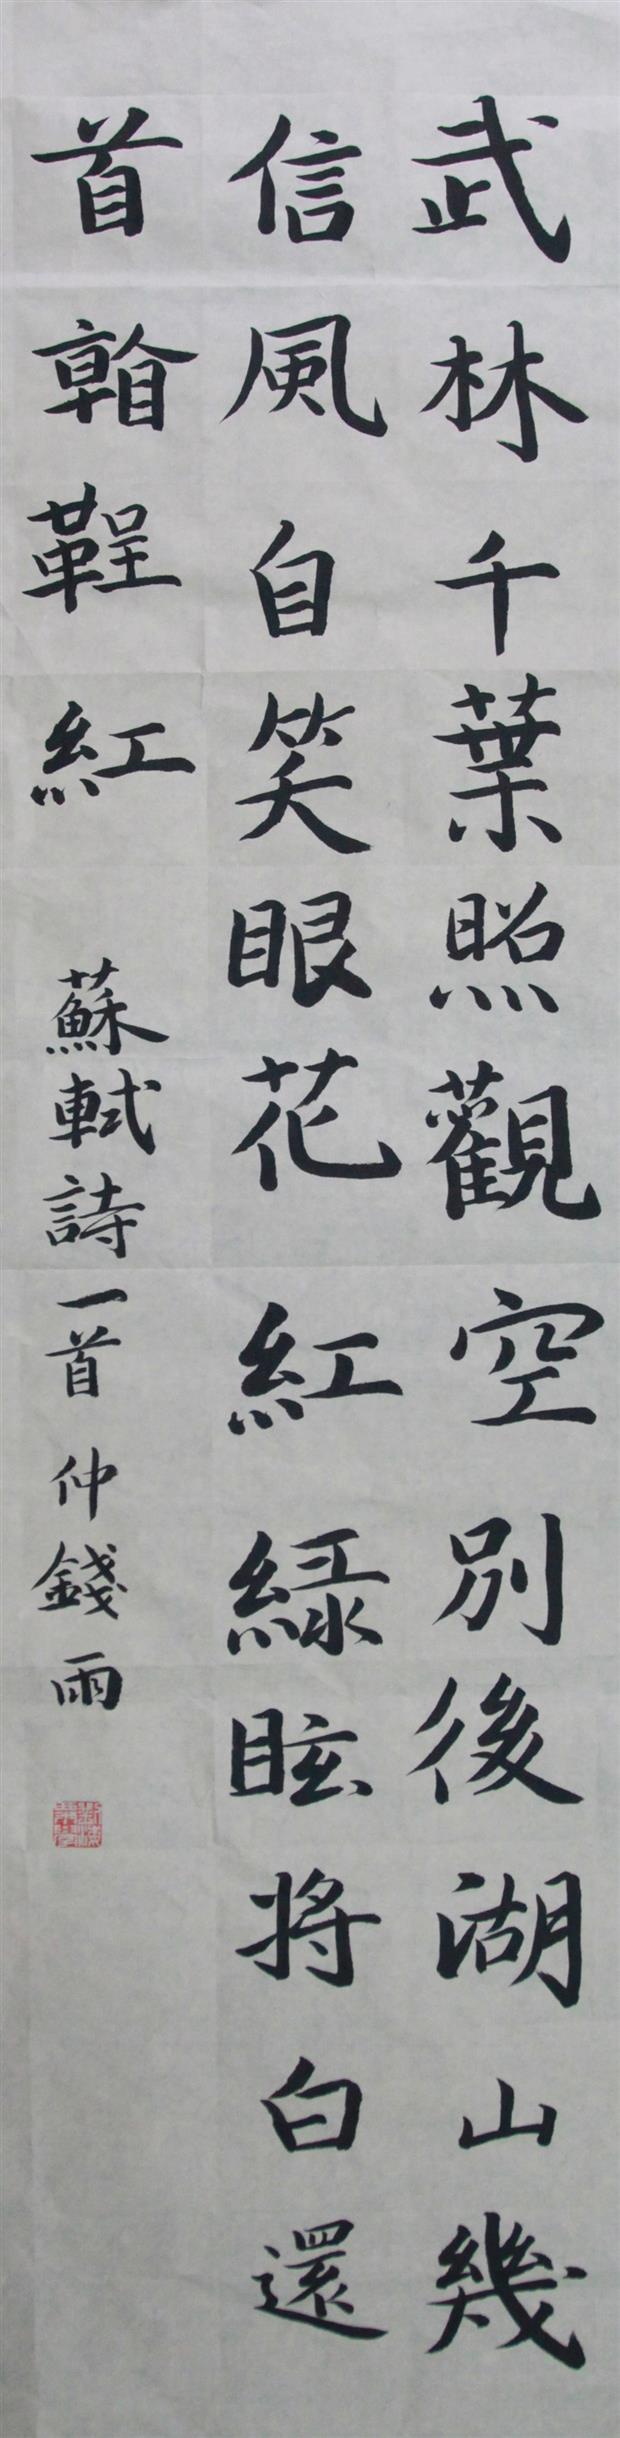 武林千葉照觀空別後湖山幾
信風自笑眼花紅綠眩将白還
首鞓紅
蘇軾詩一首 仲錢雨